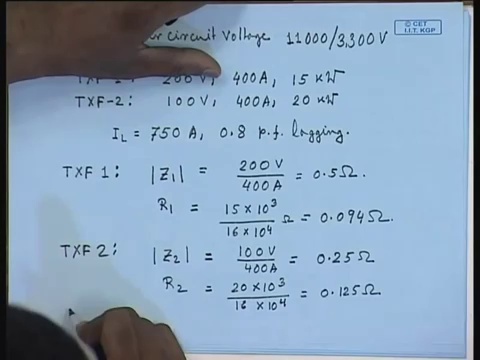 er circuit Voltage 11000/3,300V
© CET
I.I.T. KGP
TXF-1: 200V, 400A, 15 kW
TXF-2: 100V, 400A, 20 kW
I_L = 750 A, 0.8 p.f. lagging.
TXF 1: |Z₁| = 200V/400A = 0.5Ω.
R₁ = 15×10³/16×10⁴ Ω = 0.094Ω.
TXF 2: |Z₂| = 100V/400A = 0.25Ω
R₂ = 20×10³/16×10⁴ = 0.125Ω